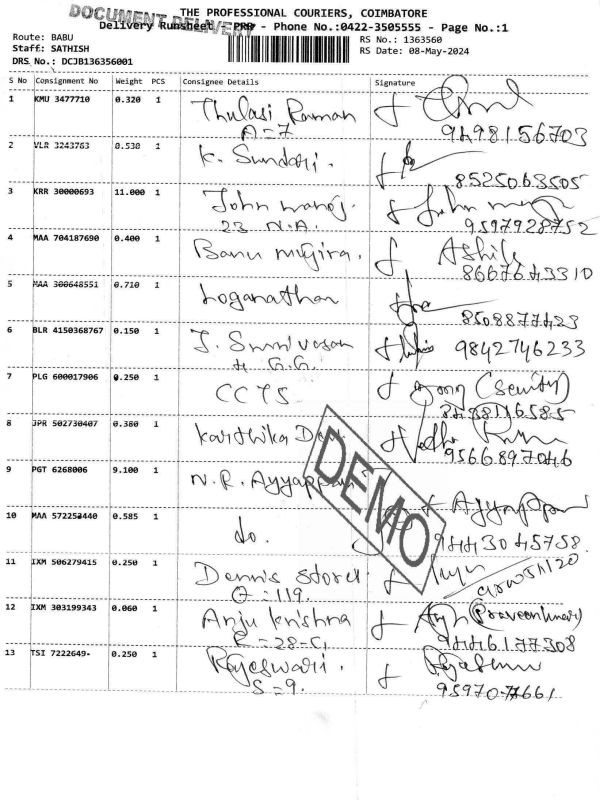 DOCUMENT DELIVERY
THE PROFESSIONAL COURIERS, COIMBATORE
Delivery Runsheet - PRO - Phone No.:0422-3505555 - Page No.:1
Route: BABU
Staff: SATHISH
DRS No.: DCJB136356001
RS No.: 1363560
RS Date: 08-May-2024
S No Consignment No Weight PCS Consignee Details Signature
1 KMU 3477710 0.320 1 Thulasi Raman
A=7 9498156703
2 VLR 3243763 0.530 1 K. Sundari.
8525063505
3 KRR 30000693 11.000 1 John manoj. John
23 N.A. 9597928752
4 MAA 704187690 0.400 1 Banu mugira.
8667643310
5 MAA 300648551 0.710 1 Loganathan
8508877423
6 BLR 4150368767 0.150 1 J. Srinivasan 9842746233
G.G.
7 PLG 600017906 0.250 1 CCTS
8 JPR 502730407 0.380 1 Karthika
9566897046
9 PGT 6268006 9.100 1 N.R. Ayyappan
DEMO
10 MAA 572253440 0.585 1 do.
9443045758
11 IXM 506279415 0.250 1 Dennis Stores
=119.
12 IXM 303199343 0.060 1 Anju Krishna
=28-C,
9446177308
13 TSI 7222649- 0.250 1 Rajeswari.
S=9.